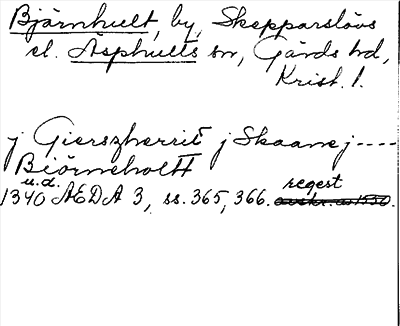 Bjärnhult, by, Skepparslövs
el. Äsphults sn, Gärds hd,
Krist. l.
j Gierszherrit j Skaane j ----
Biörneholtt
u.d. regest
1340 ÆDA 3, ss. 365, 366. avskr. ca 1550.